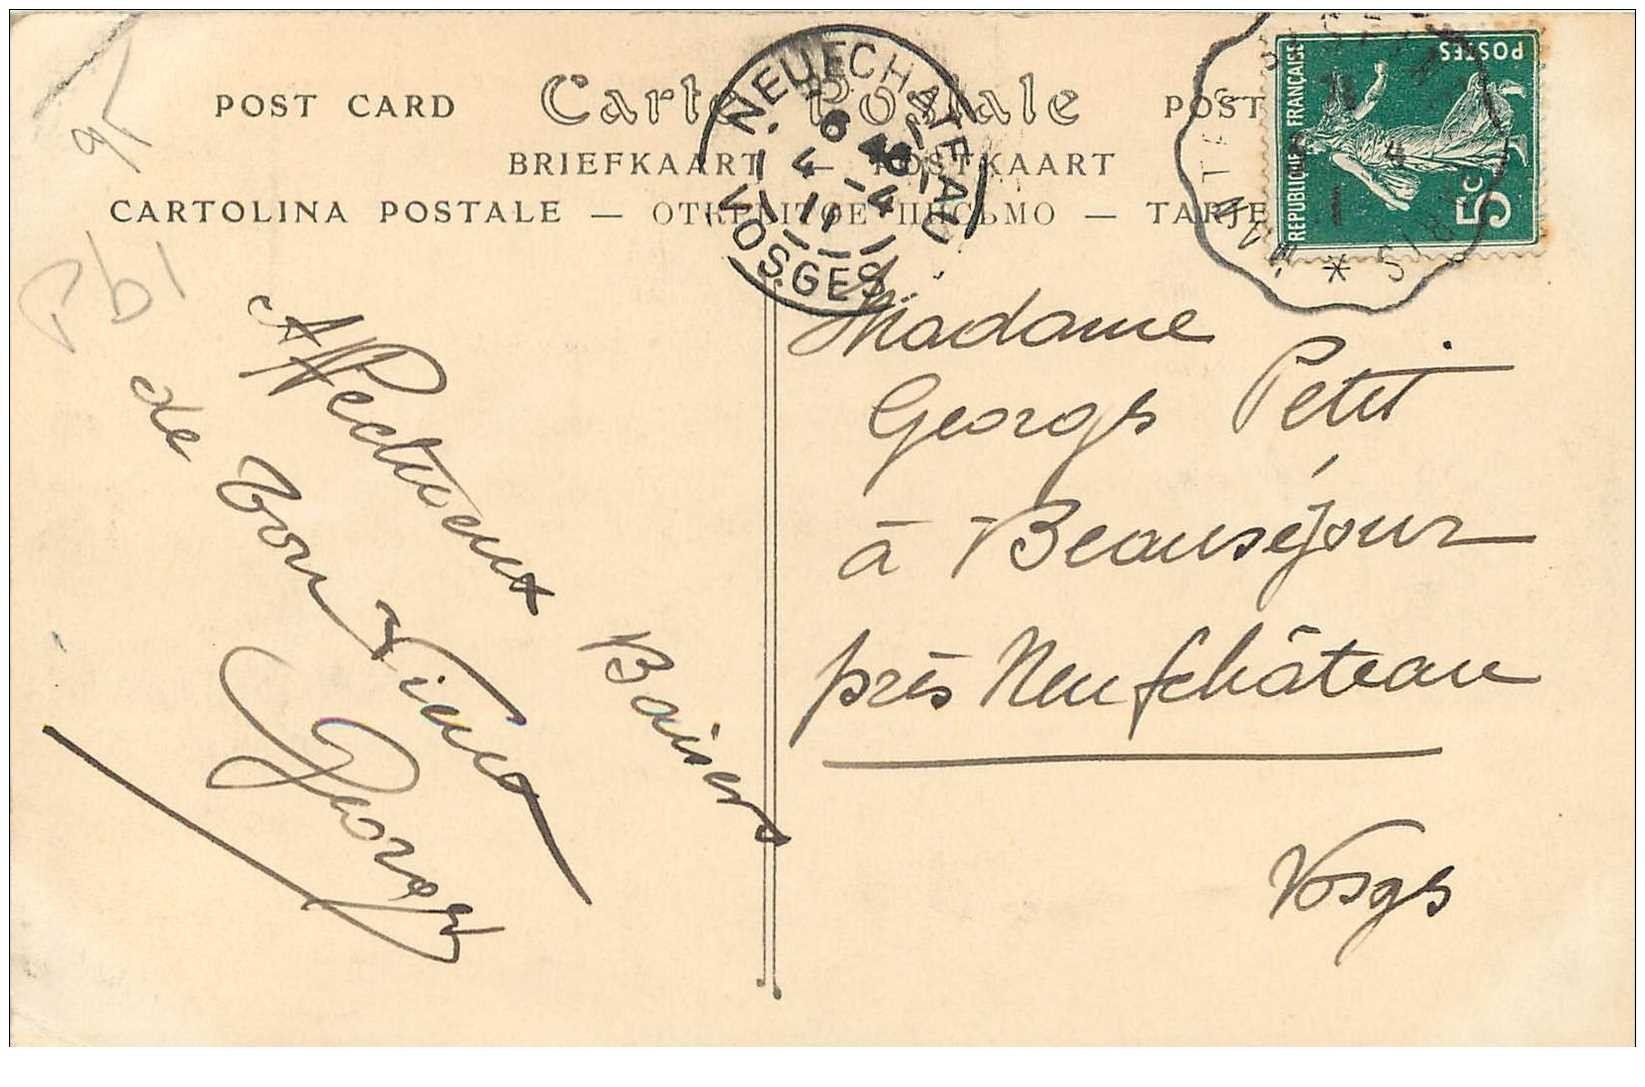 POST CARD Carte Postale POST
BRIEFKAART — POSTKAART
CARTOLINA POSTALE — ОТКРЫТОЕ ПИСЬМО — TARJE
NEUFCHATEAU
6 45
4 - 4
11
VOSGES
REPUBLIQUE FRANÇAISE
POSTES
5c
Affectueux Baisers
de ton Vieux
Georges
Madame
Georges Petit
à Beauséjour
près Neufchâteau
Vosges